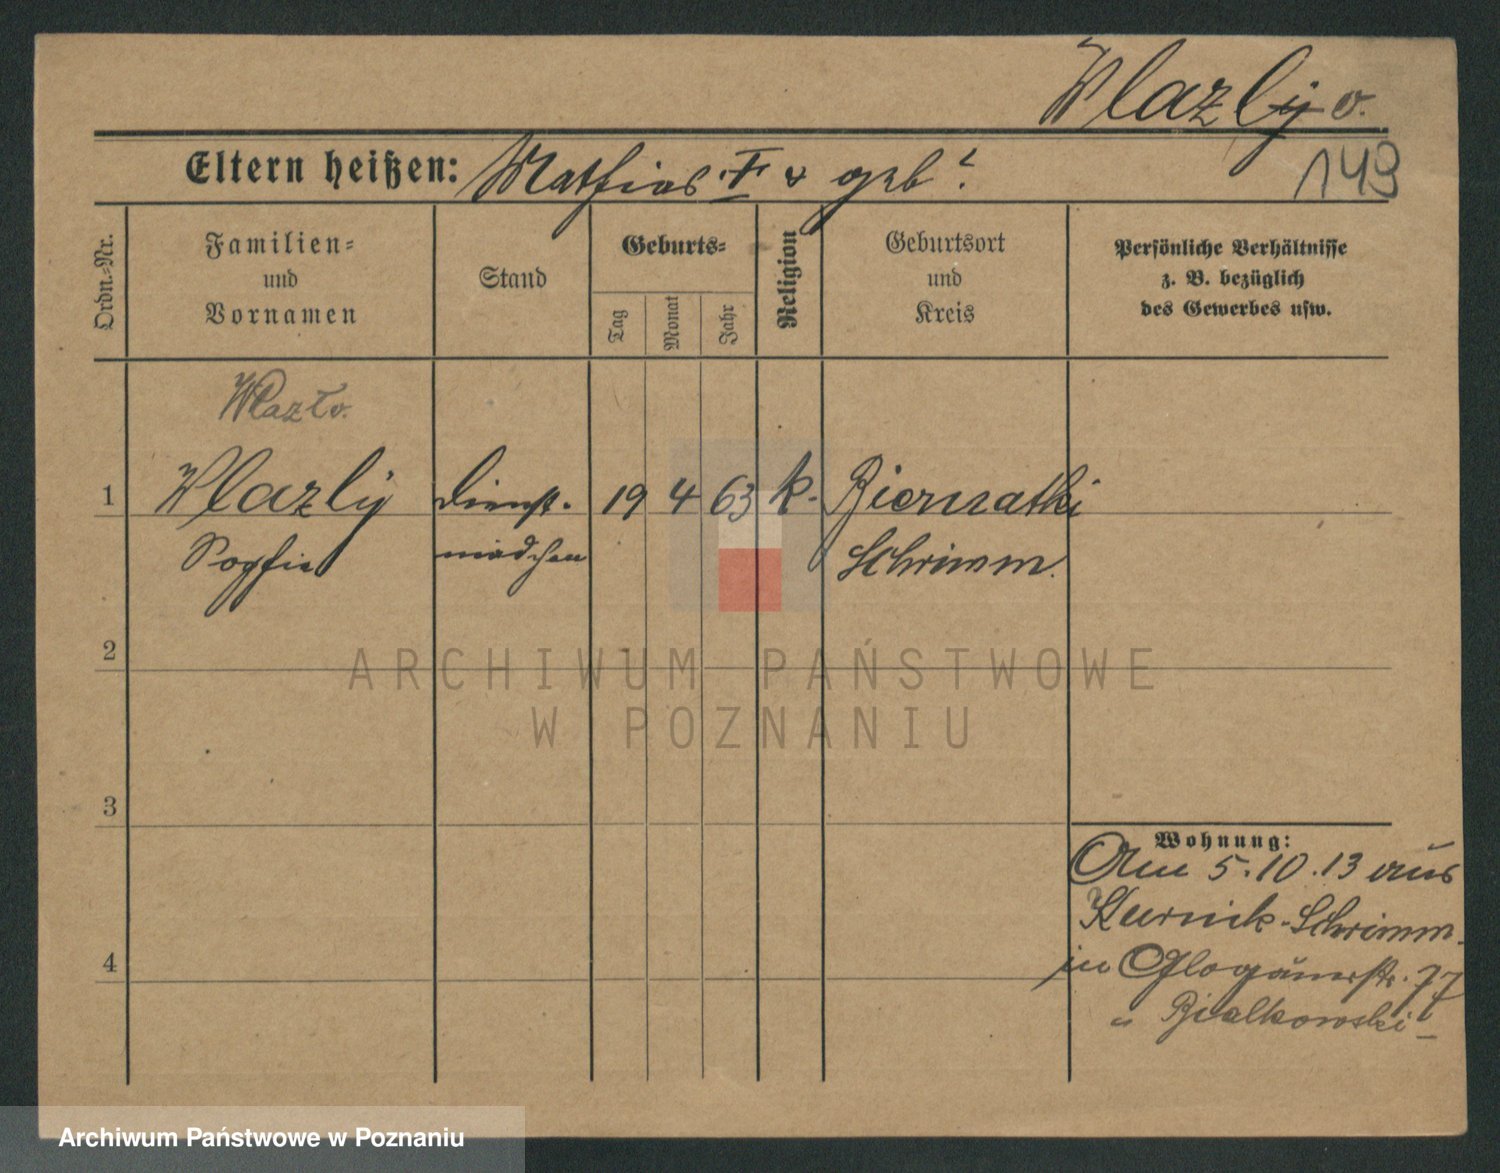 Wlazly o.
Eltern heißen: Mathias F u geb?
149
Ordn.-Nr.
Familien-
und
Vornamen
Stand
Geburts-
Tag
Monat
Jahr
Religion
Geburtsort
und
Kreis
Persönliche Verhältnisse
z. B. bezüglich
des Gewerbes usw.
Wlazło.
1 Wlazly Dienst- 19 4 63 k. Biernatki
Sophie mädchen Schrimm.
2
ARCHIWUM PAŃSTWOWE
W POZNANIU
3
Wohnung:
Am 5.10.13 aus
Kurnik-Schrimm.
4
in Glogauerstr. 77
" Bialkowski
Archiwum Państwowe w Poznaniu